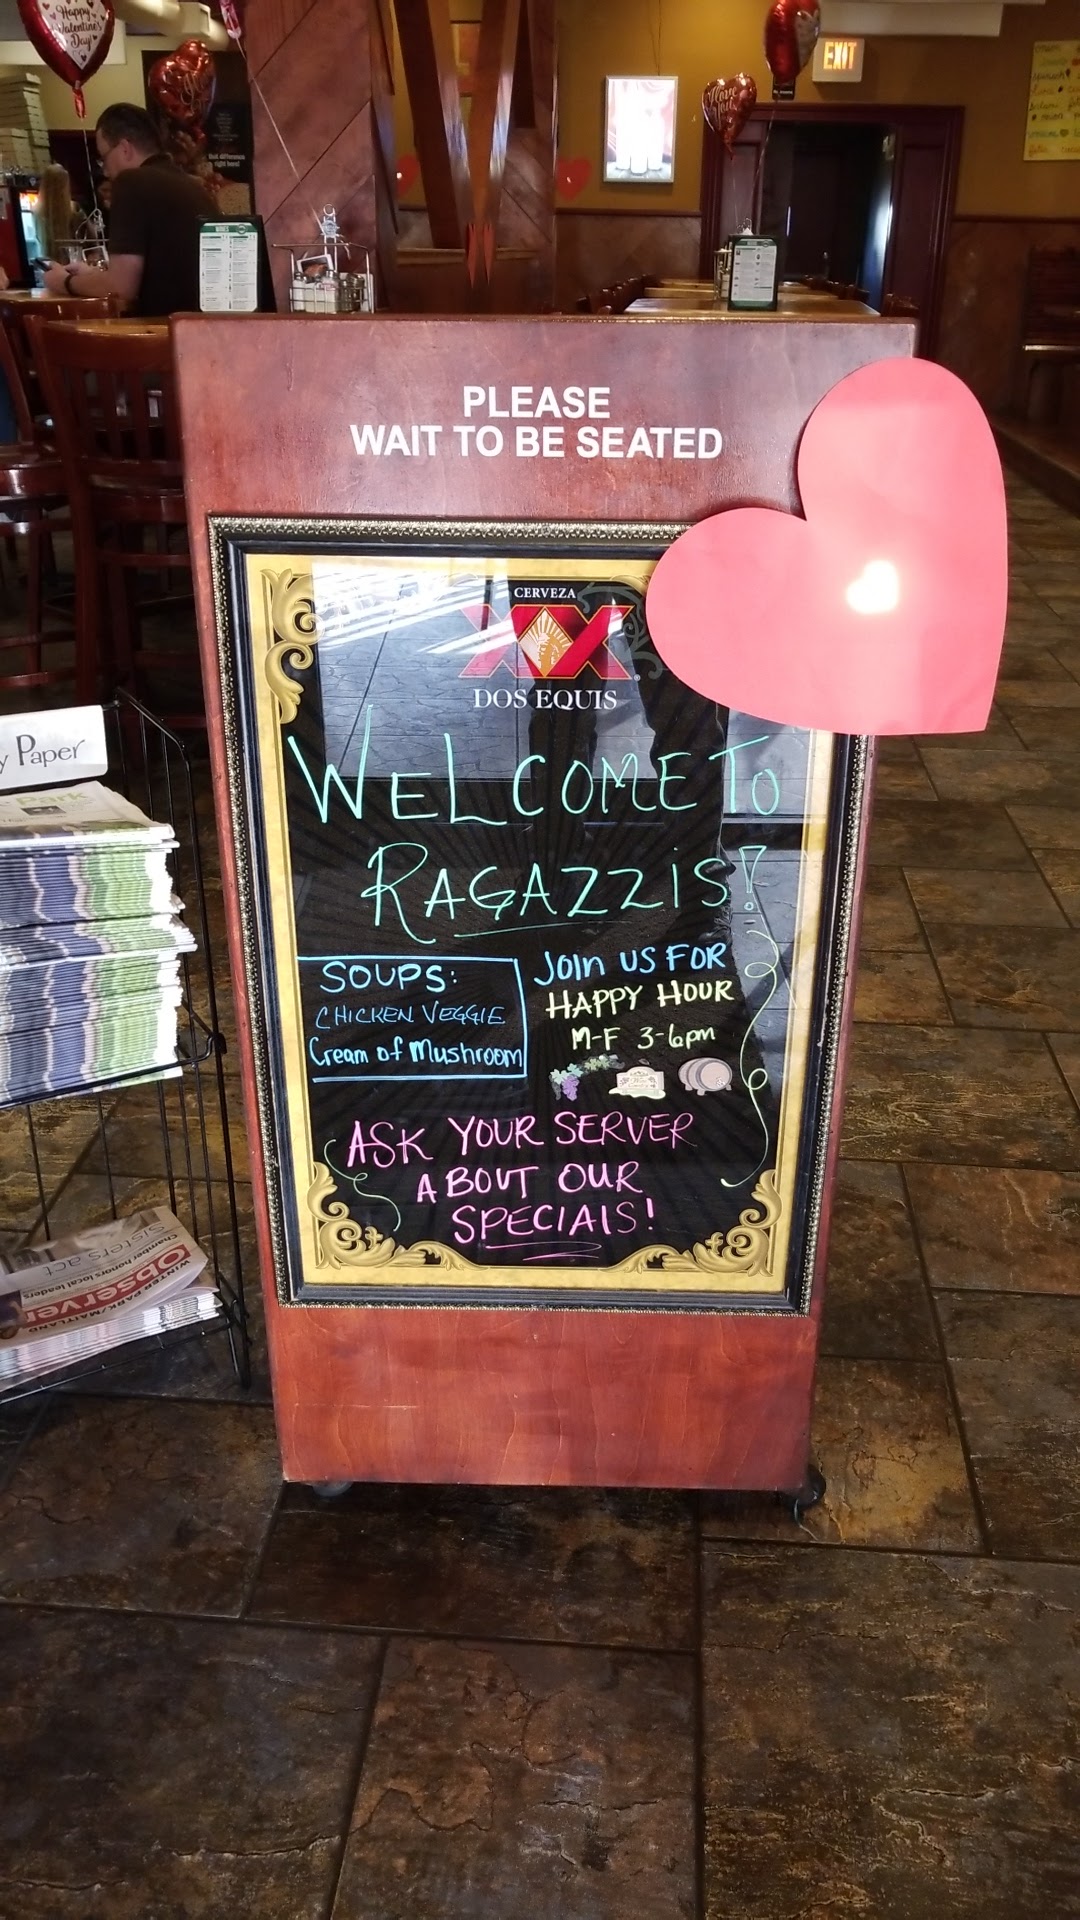 Happy
Valentine's
Day!
EXIT
PLEASE
WAIT TO BE SEATED
CERVEZA
XX
DOS EQUIS
WELCOME TO
RAGAZZIS!
SOUPS:
CHICKEN VEGGIE
Cream of Mushroom
JOIN US FOR
HAPPY HOUR
M-F 3-6pm
ASK YOUR SERVER
ABOUT OUR
SPECIALS!
y Paper
WINTER PARK/MAITLAND
Observer
Chamber honors local leaders
Sisters act